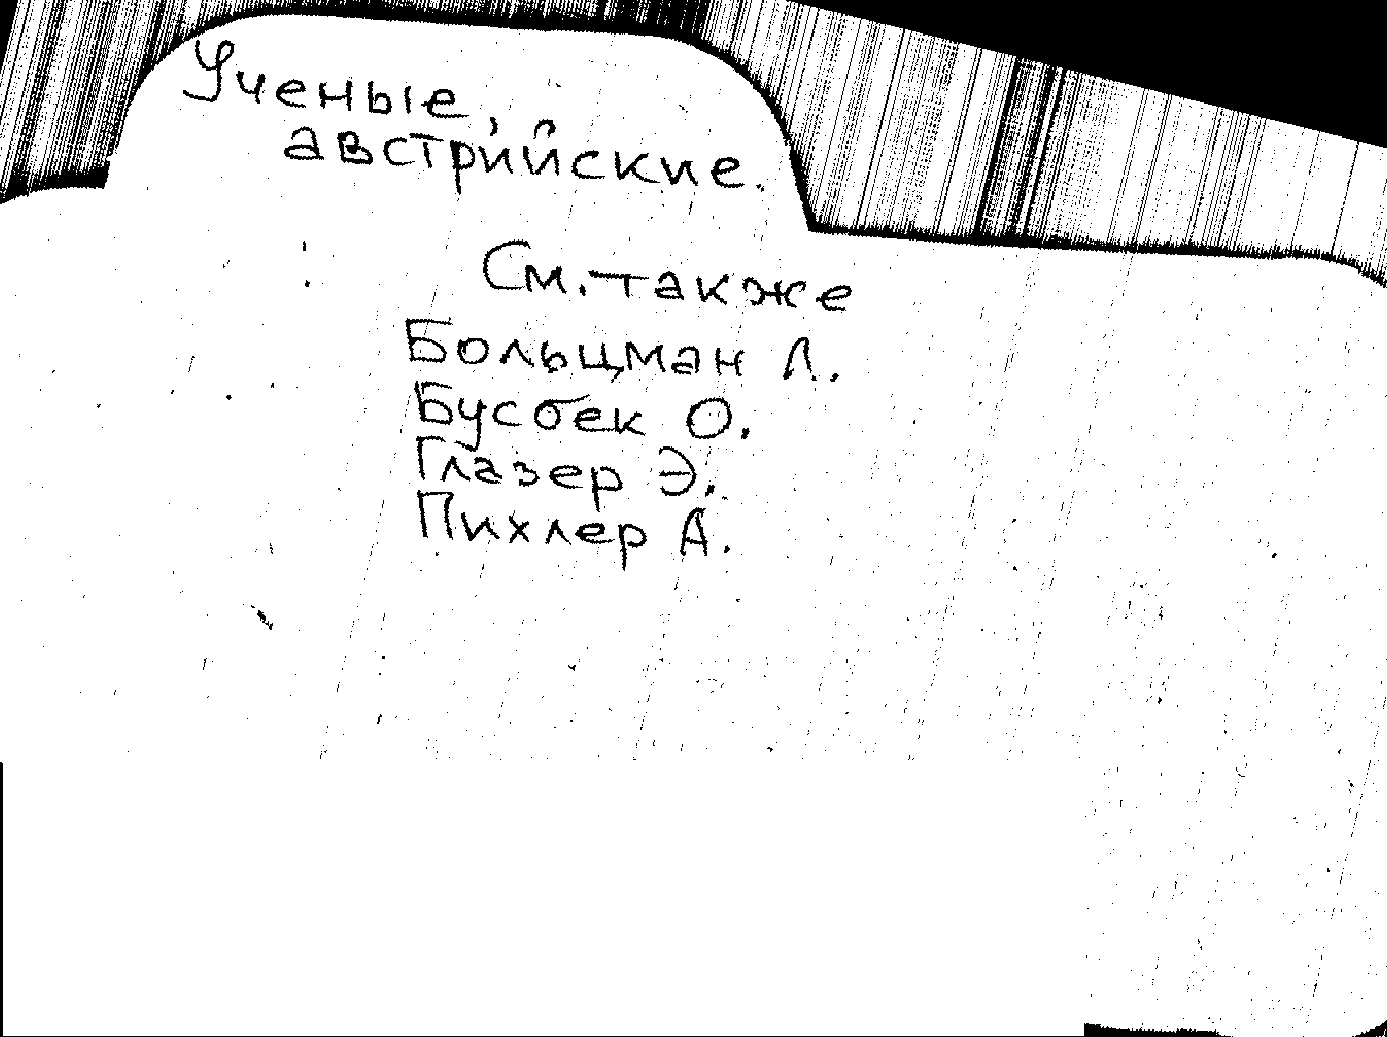 Ученые,
австрийские.
См. также
Больцман Л.
Бусбек О.
Глазер Э.
Пихлер А.